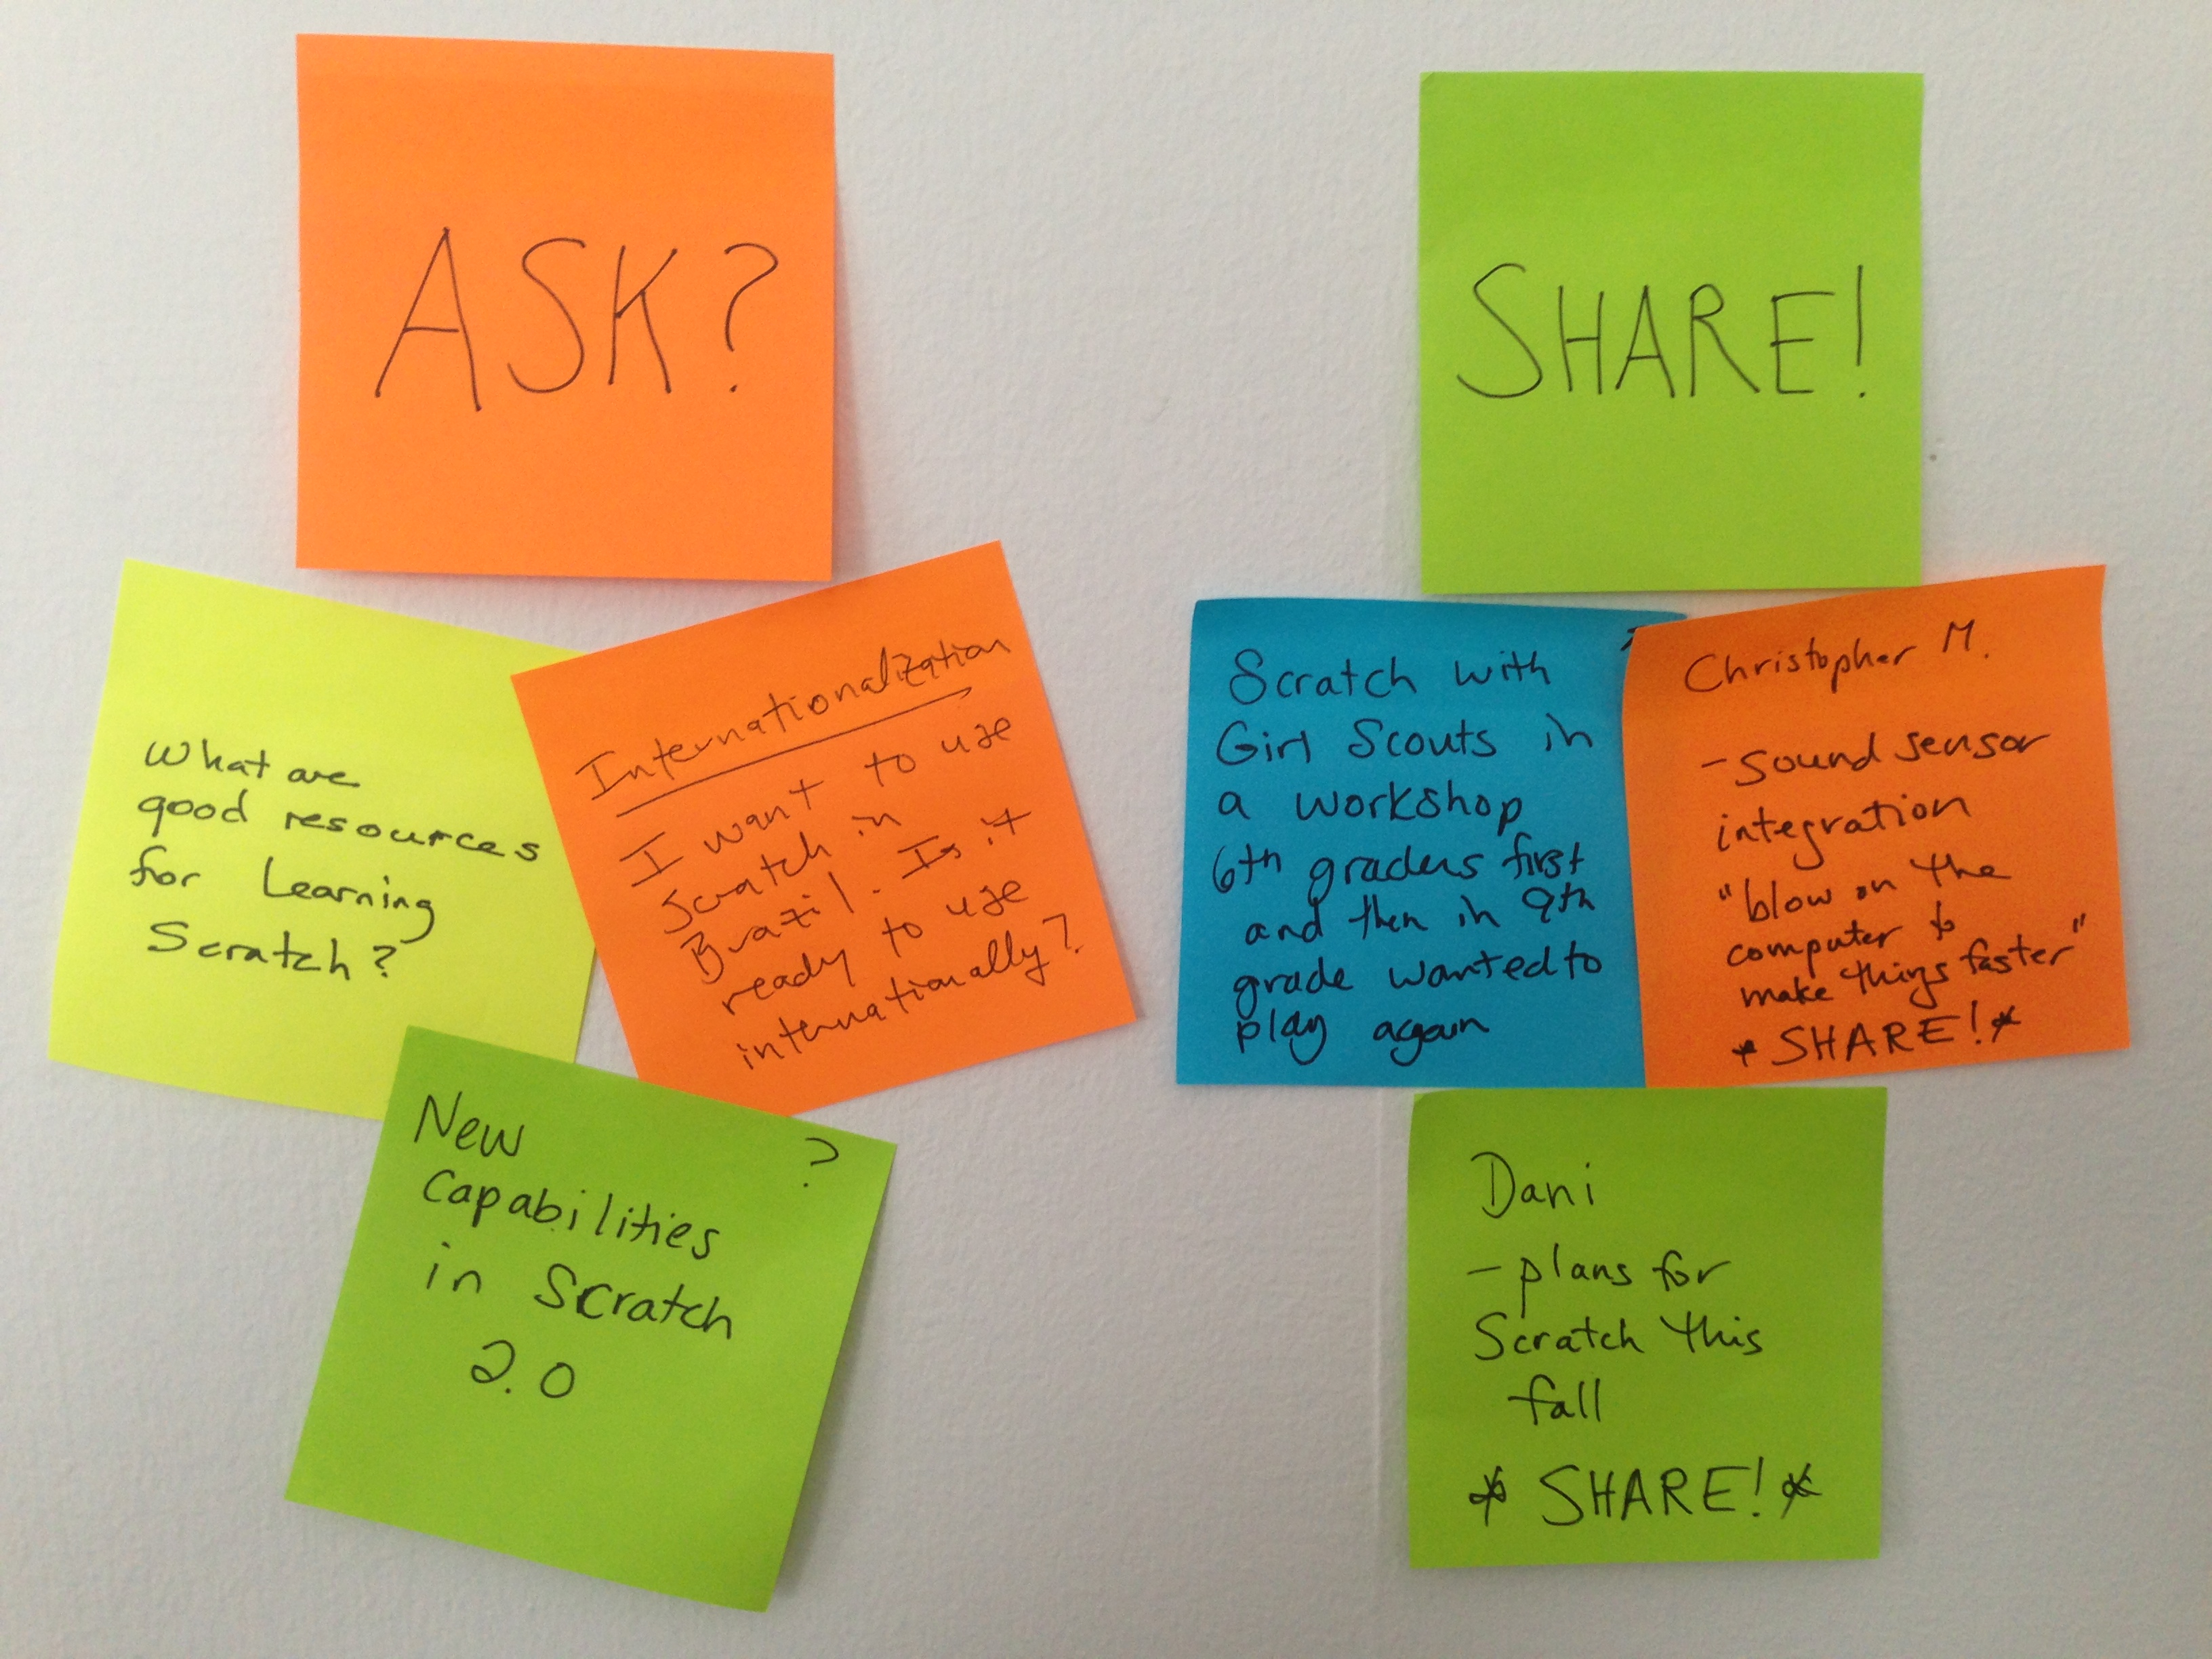 ASK?
What are
good resources
for Learning
Scratch?
Internationalization
I want to use
Scratch in
Brazil. Is it
ready to use
internationally?
New ?
Capabilities
in Scratch
2.0
SHARE!
Scratch with
Girl Scouts in
a workshop
6th graders first
and then in 9th
grade wanted to
play again
Christopher M.
- sound sensor
integration
"blow on the
computer to
make things faster"
* SHARE! *
Dani
- plans for
Scratch this
fall
* SHARE! *